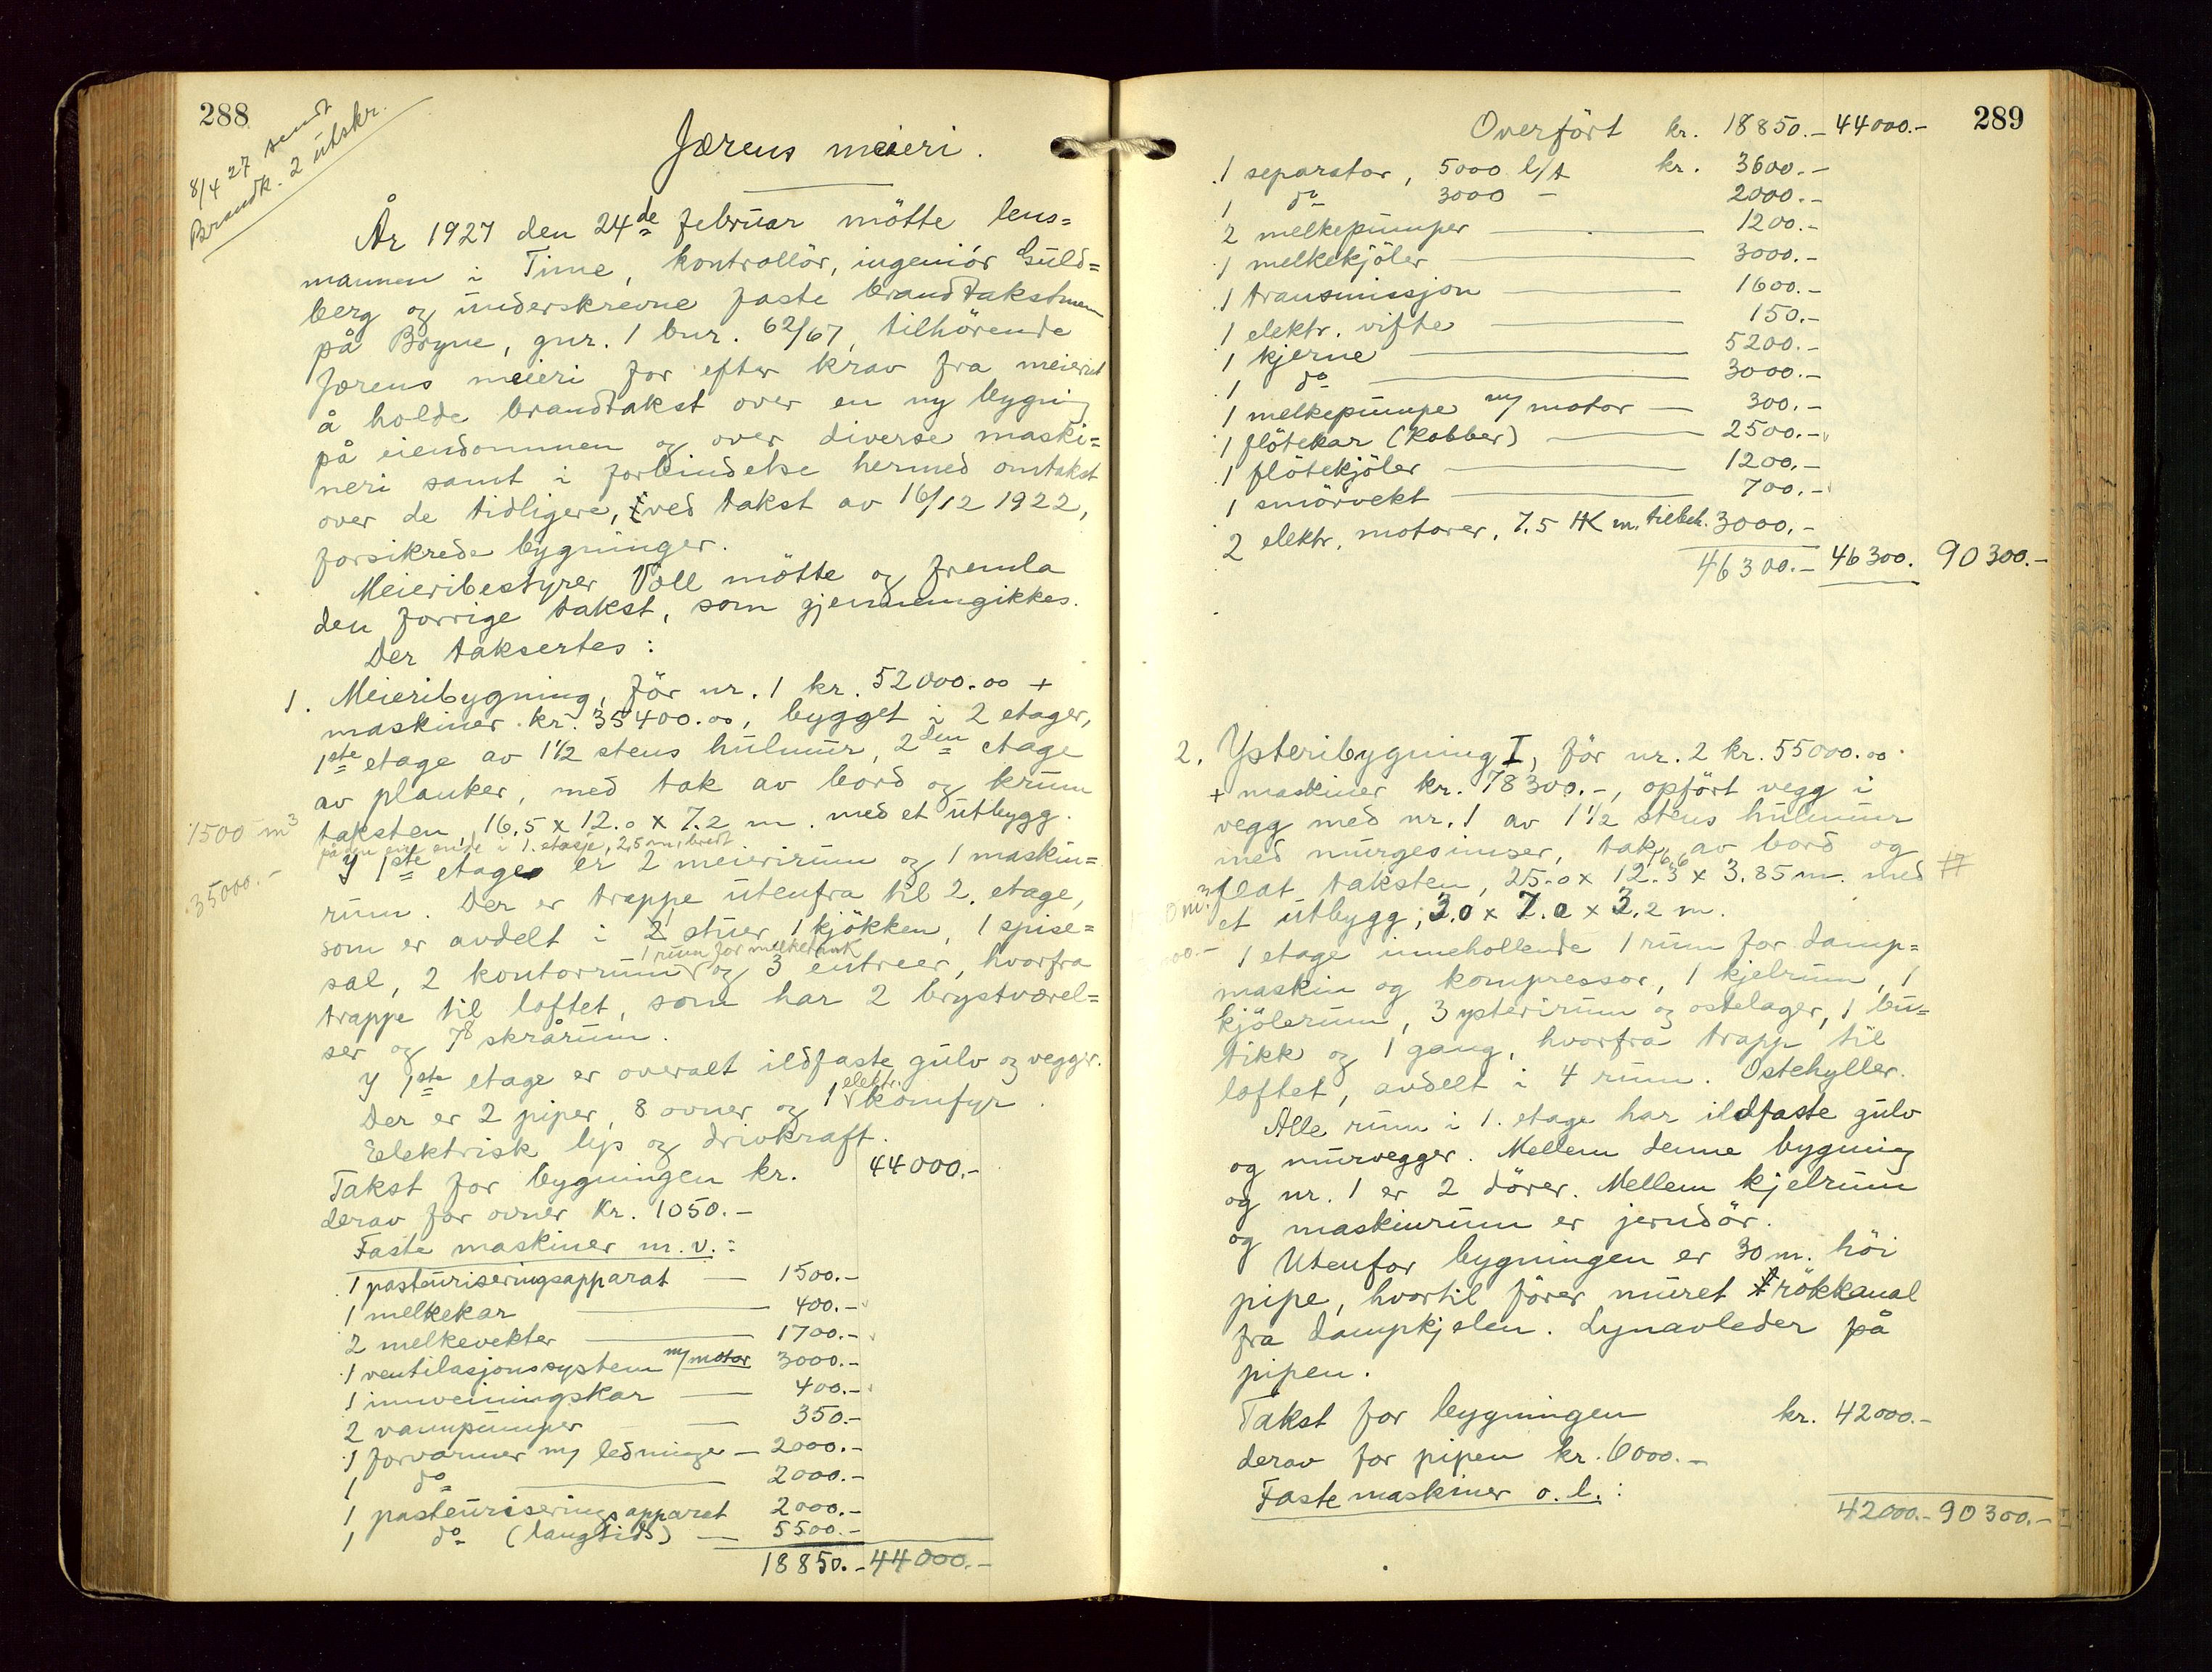 288
8/4 27 sendt
Brandk. 2 utskr.
Jærens meieri.
År 1927 den 24de februar mötte lens=
mannen i Time, kontrollör, ingeniör Guld=
berg og underskrevne faste brandtakstmenn
på Bryne, gnr. 1 bnr. 62/67, tilhörende
Jærens meieri for efter krav fra meieriet
å holde brandtakst over en ny bygning
på eiendommen og over diverse maski=
neri samt i forbindelse hermed omtakst
over de tidligere, ved takst av 16/12 1922,
forsikrede bygninger.
Meieribestyrer Voll mötte og fremla
den forrige takst, som gjennemgikkes.
Der taksertes:
1. Meieribygning, för nr. 1 kr. 52000.00 +
maskiner kr. 35400.00, bygget i 2 etager,
1ste etage av 1 1/2 stens hulmur, 2den etage
av planker, med tak av bord og krum
1500 m3
taksten, 16.5 x 12.0 x 7.2 m. med et utbygg.
på den ene ende i 1. etasje, 2,5 m. bredt
35000.-
Y 1ste etage er 2 meierirum og 1 maskin=
rum. Der er trappe utenfra til 2. etage,
som er avdelt i 2 stuer, 1 kjökken, 1 spise=
1 rum for melketank
sal, 2 kontorrum og 3 entreer, hvorfra
trappe til loftet, som har 2 brystværel=
ser og 78 skrårum.
Y 1ste etage er overalt ildfaste gulv og vegger.
Der er 2 piper, 8 ovner og 1 elektr. komfyr.
Elektrisk lys og drivkraft.
Takst for bygningen kr. 44000.-
derav for ovner kr. 1050.-
Faste maskiner m. v.:
1 pasteuriseringsapparat — 1500.-
1 melkekar — 400.-
2 melkevekter — 1700.-
1 ventilasjonssystem m/motor 3000.-
1 innveiningskar — 400.-
2 vannpumper — 350.-
1 forvarmer m/ ledninger — 2000.-
1 do — 2000.-
1 pasteuriseringsapparat 2000.-
1 do (langtids) — 5500.-
18850.- 44000.-
289
Overfört kr. 18850.- 44000.-
1 separator, 5000 l/t kr. 3600.-
1 do 3000 - 2000.-
2 melkepumper — 1200.-
1 melkekjöler — 3000.-
1 transmissjon — 1600.-
1 elektr. vifte — 150.-
1 kjerne — 5200.-
1 do — 3000.-
1 melkepumpe m/ motor — 300.-
1 flötekar (kobber) — 2500.-
1 flötekjöler — 1200.-
1 smörvekt — 700.-
2 elektr. motorer, 7.5 HK m. tilbeh. 3000.-
46300.- 46300. 90300.-
2. Ysteribygning I, för nr. 2 kr. 55000.00
+ maskiner kr. 78300.-, opfört vegg i
vegg med nr. 1 av 1 1/2 stens hulmur
med murgesimser, tak av bord og
16,6
flat taksten, 25.0 x 12.3 x 3.85 m. med
et utbygg, 3.0 x 7.0 x 3.2 m.
1 etage inneholdende 1 rum for damp=
maskin og kompressor, 1 kjelrum, 1
kjölerum, 3 ysterirum og ostelager, 1 bu=
tikk og 1 gang, hvorfra trapp til
loftet, avdelt i 4 rum. Ostehyller.
Alle rum i 1. etage har ildfaste gulv
og murvegger. Mellem denne bygning
og nr. 1 er 2 dörer. Mellem kjelrum
og maskinrum er jerndör.
Utenfor bygningen er 30 m. höi
pipe, hvortil förer muret rökkanal
fra dampkjelen. Lynavleder på
pipen.
Takst for bygningen kr. 42000.-
derav for pipen kr. 6000.-
Faste maskiner o. l.:
42000.- 90300.-